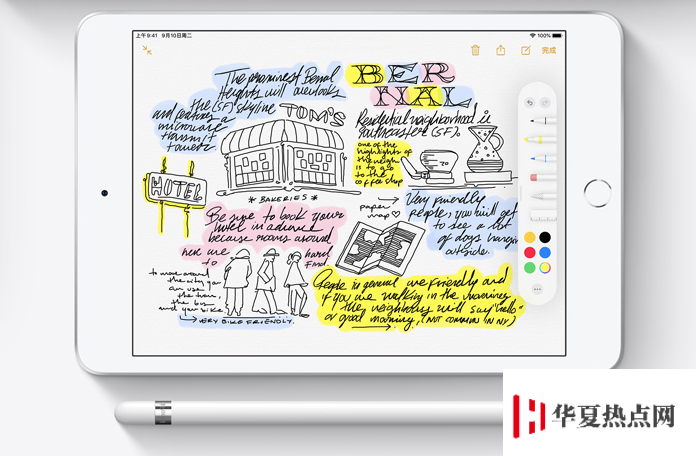 上午9:41 9月10日周二
100%
完成
The prominent Bernal
Heights will overlooks
the (SF) skyline
and features a
microwave
transmit
tower
BER
NAL
TOM'S
Residential neighborhood is
southeastern (SF).
one of the
highlights of
the neigh
is to go
to the
coffee shop
HOTEL
* BAKERIES *
paper
map
Very friendly
people, you will get
to see a lot
of dogs hanging
outside.
Be sure to book your
hotel in advance
because rooms around
here are
to
hard
find.
to move around
the city you
can use
the train,
the bus
and your bike
VERY BIKE FRIENDLY.
People in general are friendly and
if you are walking in the morning
the neighbors will say "hello"
or good morning, (NOT COMMON IN NY)
华夏热点网